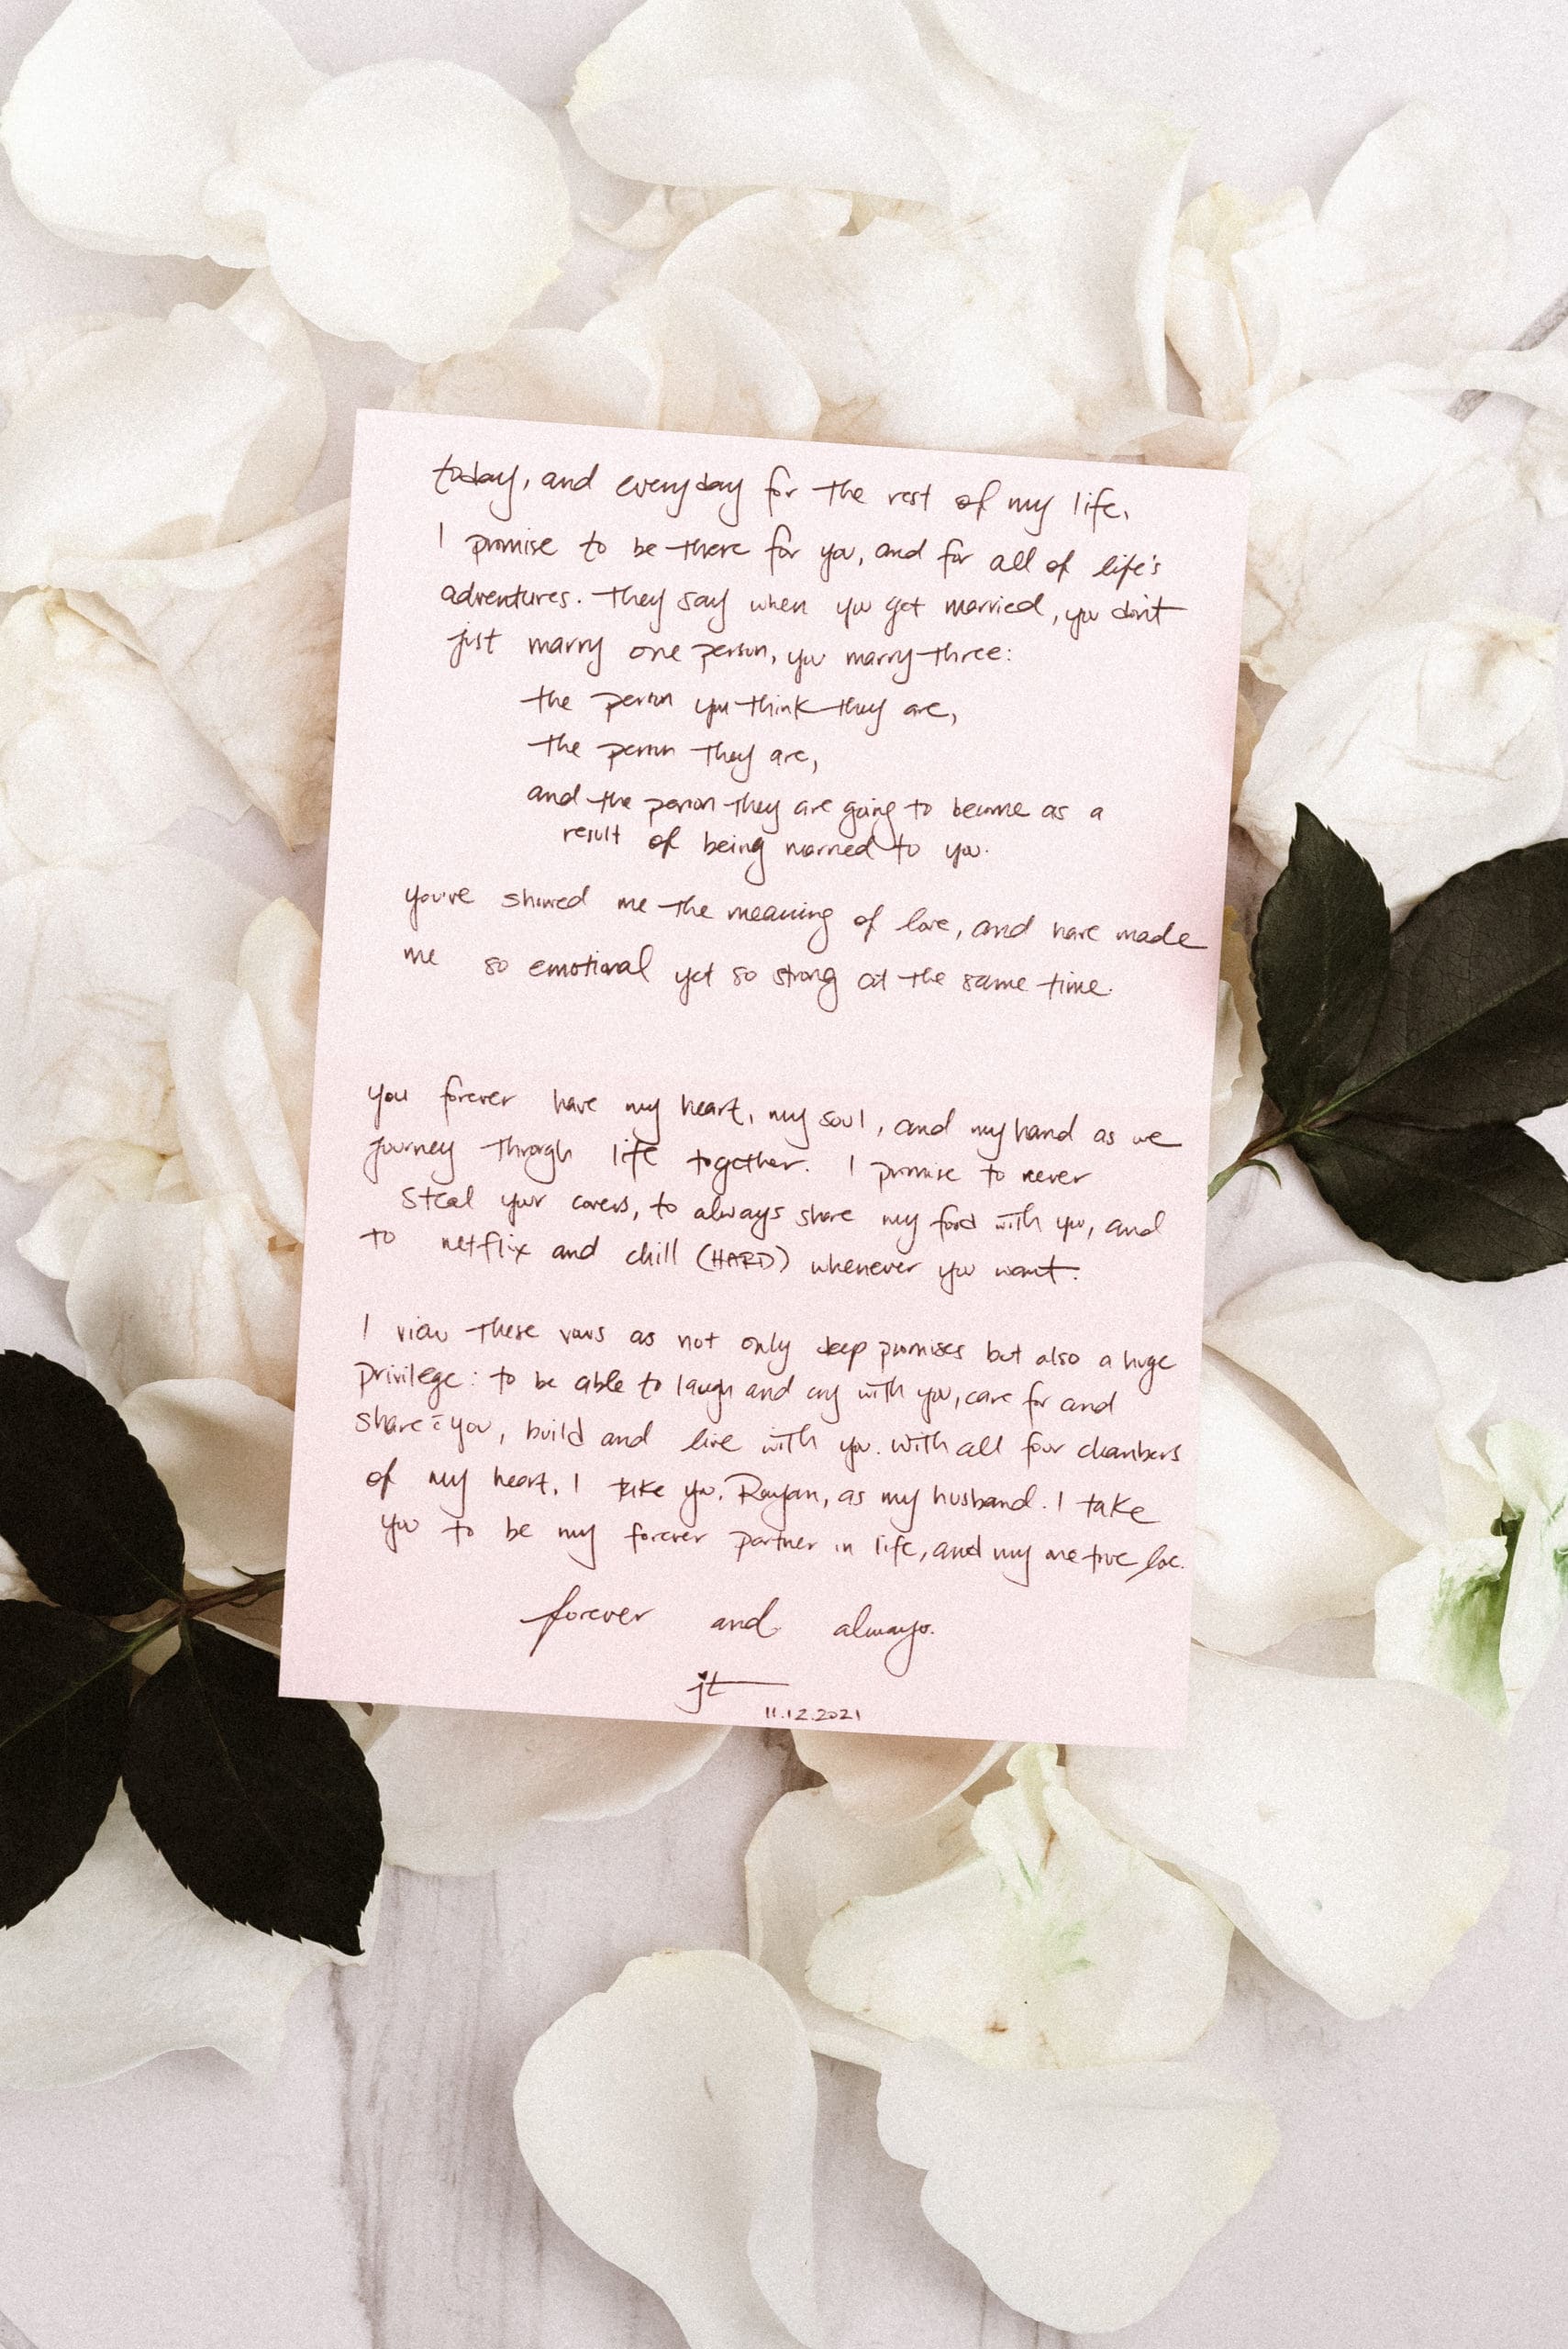 today, and everyday for the rest of my life,
I promise to be there for you, and for all of life's
adventures. They say when you get married, you don't
just marry one person, you marry three:
the person you think they are,
the person they are,
and the person they are going to become as a
result of being married to you.
you've showed me the meaning of love, and have made
me so emotional yet so strong at the same time.
you forever have my heart, my soul, and my hand as we
journey through life together. I promise to never
steal your covers, to always share my food with you, and
to netflix and chill (HARD) whenever you want.
I view these vows as not only deep promises but also a huge
privilege: to be able to laugh and cry with you, care for and
share c̄ you, build and live with you. With all four chambers
of my heart, I take you, Rayan, as my husband. I take
you to be my forever partner in life, and my one true love.
forever and always.
jt
11.12.2021